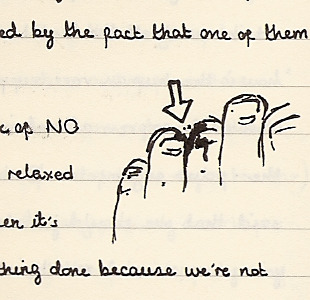 ed by the fact that one of them
of NO
relaxed
en it's
thing done because we're not